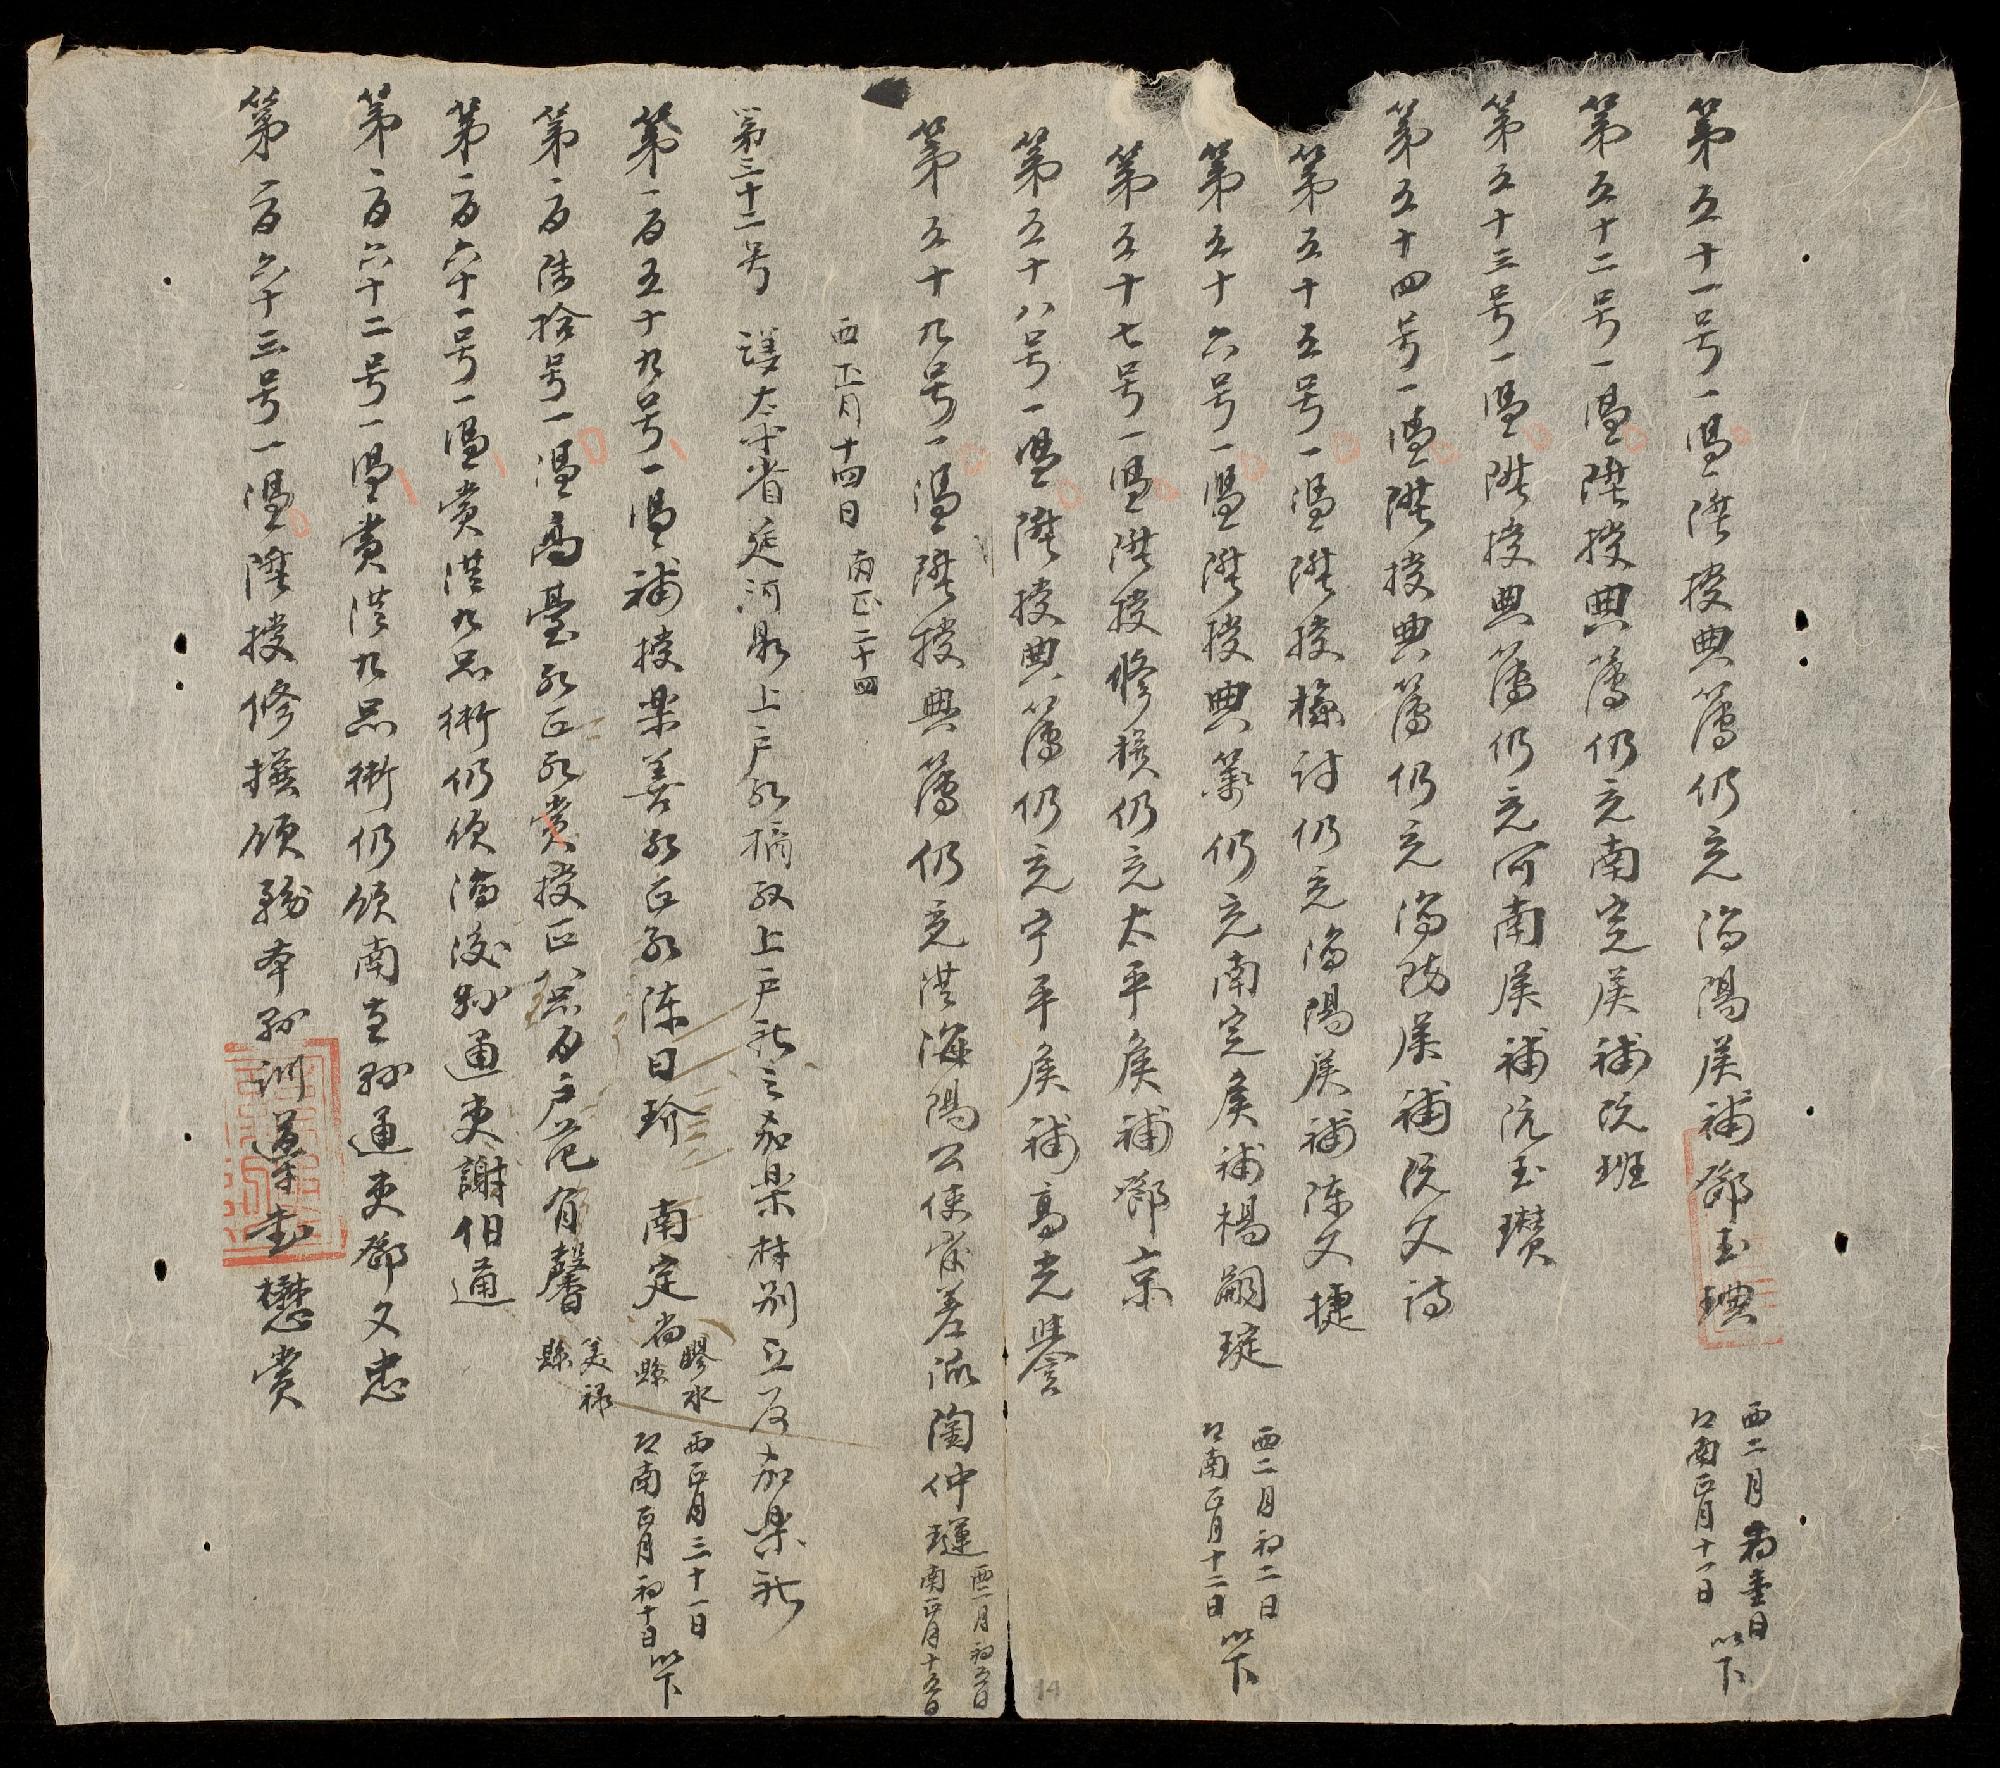 第五十一号一凴陞授典簿仍充海陽候補鄧玉璵
西二月初壹日
南正月十一日
以下
第五十二号一凴陞授典簿仍充南定候補阮班
第五十三号一凴陞授典簿仍充河南候補阮玉瓚
第五十四号一凴陞授典簿仍充海防候補阮文詩
第五十五号一凴陞授檢討仍充海陽候補陳文捷
第五十六号一凴陞授典簿仍充南定候補楊嗣琔
西二月初二日
南正月十二日
以下
第五十七号一凴陞授修撰仍充太平候補鄧京
第五十八号一凴陞授典簿仍充宁平候補高光譽
第五十九号一凴陞授典簿仍充海陽公使官差派陶仲璉
西二月初五日
南正月十五日
西正月十四日 南正二十四
第三十二号 議太平省延河縣上户社摘取上户社之加樂村别立為加樂社
第一百五十九号一凴補授樂善社正社陳曰珍 南定省膠水縣
西正月三十一日
南正月初十日
以下
第一百陸拾号一凴高臺社正社賞授正八品百户范有馨美祿縣
第一百六十一号一凴賞从九品銜仍領海後縣通吏謝伯通
第一百六十二号一凴賞从九品銜仍領南直縣通吏鄧文忠
第一百六十三号一凴陞授修撰領務本縣訓導武懋賞
14